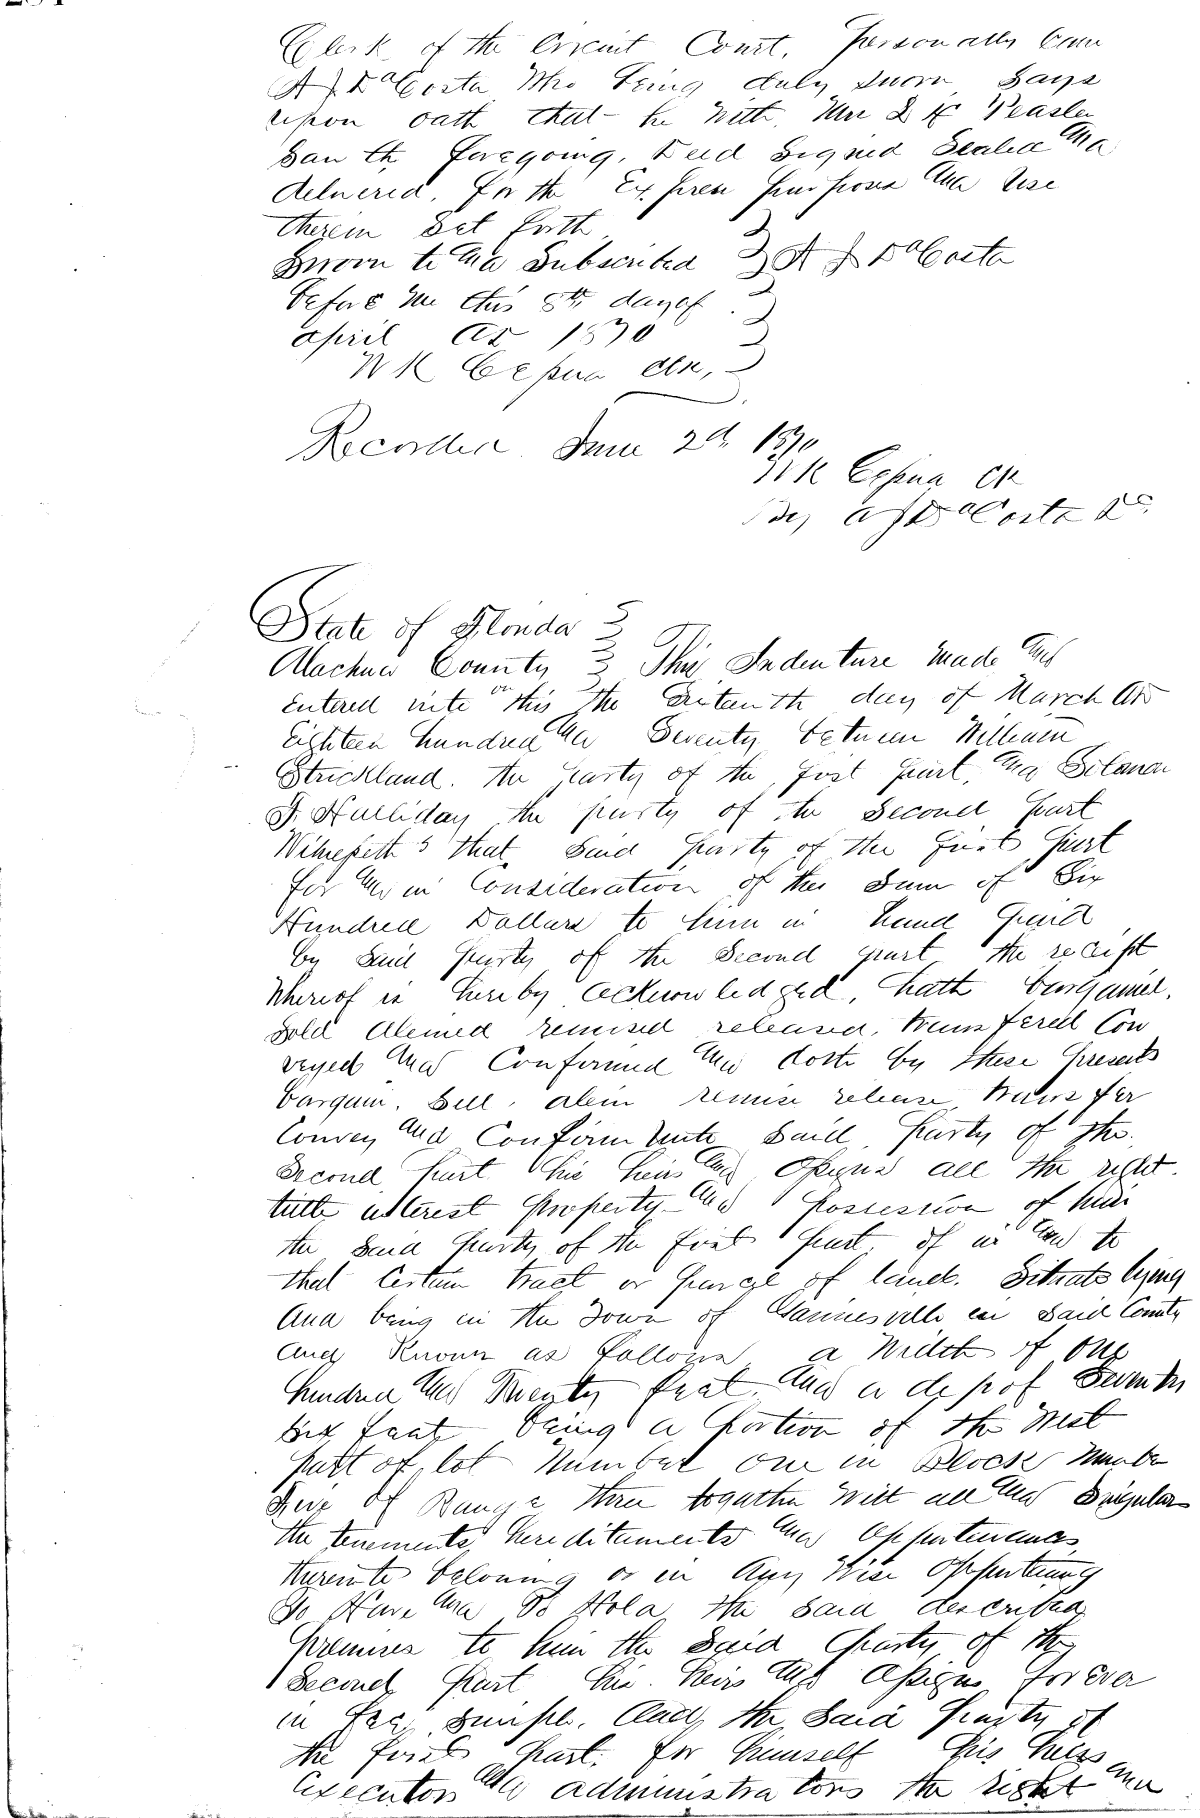 Clerk of the Circuit Court, Personally Came
A J DaCosta Who being duly sworn Says
upon oath that he with Mr L K Peasler
Saw the foregoing, Deed Signed Sealed And
delivered, for the Express purposes And Use
therein Set forth
Sworn to And Subscribed } A J DaCosta
before me this 8th day of
april AD 1870
W K Cessna Clk,
Recorded June 2d 1870
W K Cessna Clk
By A J DaCosta DC.
State of Florida }
Alachua County } This Indenture made And
Entered into on this the day of March AD
Eighteen hundred And Seventy between William
Strickland. the party of the first part, And
F. Halliday the party of the Second part
Witnesseth that said party of the first part
for And in Consideration of the Sum of Six
Hundred Dollars to him in hand paid
by said party of the Second part the receipt
Whereof is hereby acknowledged, hath bargained,
Sold aliened remised released, transfered Con
veyed And Confirmed And doth by these presents
bargain, Sell, alein remise release, transfer
Convey And Confirm Unto Said party of the
Second part his heirs And Assigns all the right
tittle interest property And possession of him
the Said party of the first part, of in And to
that Certain tract or parcel of land. Situate lying
And being in the Town of Gainesville in Said County
and Known as follows a Width of One
hundred And Twenty feat, And a dep of Seventy
Six feat being a portion of the West
part of lot Number one in Block Number
five of Range three togather with all And Singular
the tenements hereditaments And Appurtenances
thereinto beloning or in Any Wise Appertaining
To Have And To Hold the Said described
premises to him the Said party of the
Second part his heirs And Assigns forever
in fee simple. And the Said party of
the first part, for himself his heirs
Executors And administrators the right and